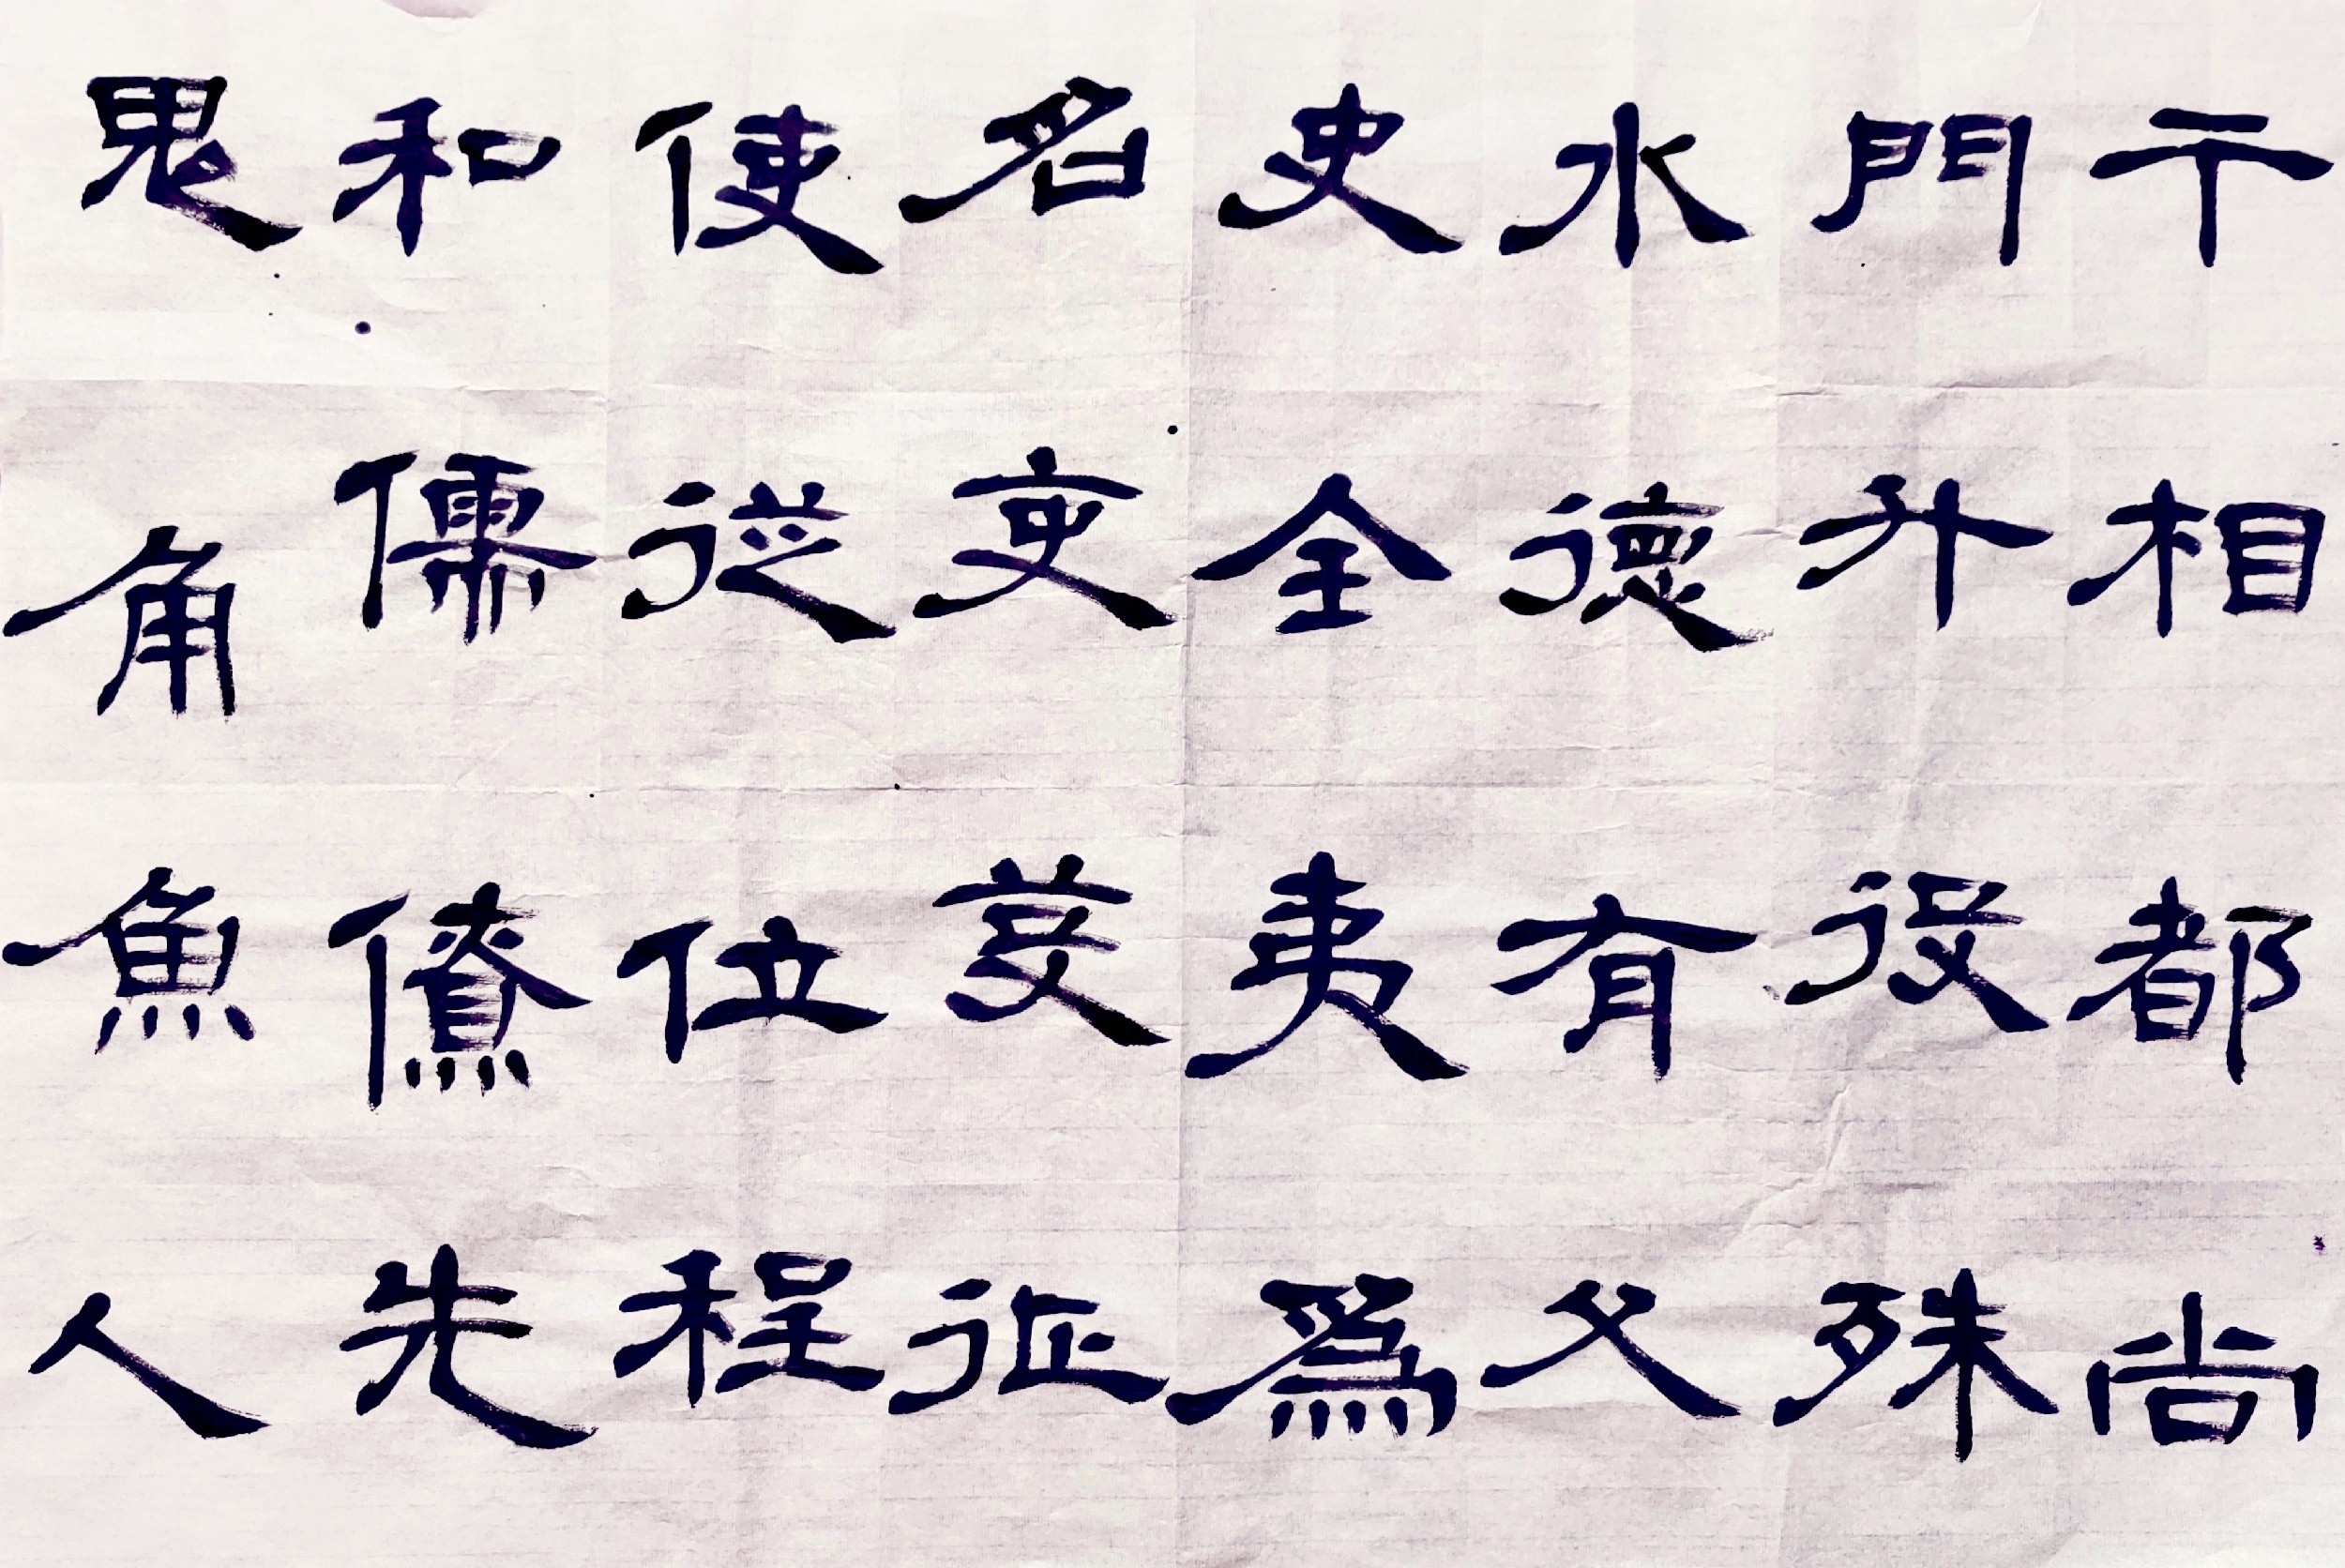 于相都尚
門升役殊
水德有父
史全夷爲
名吏征
使從位程
和儒僚先
鬼角魚人